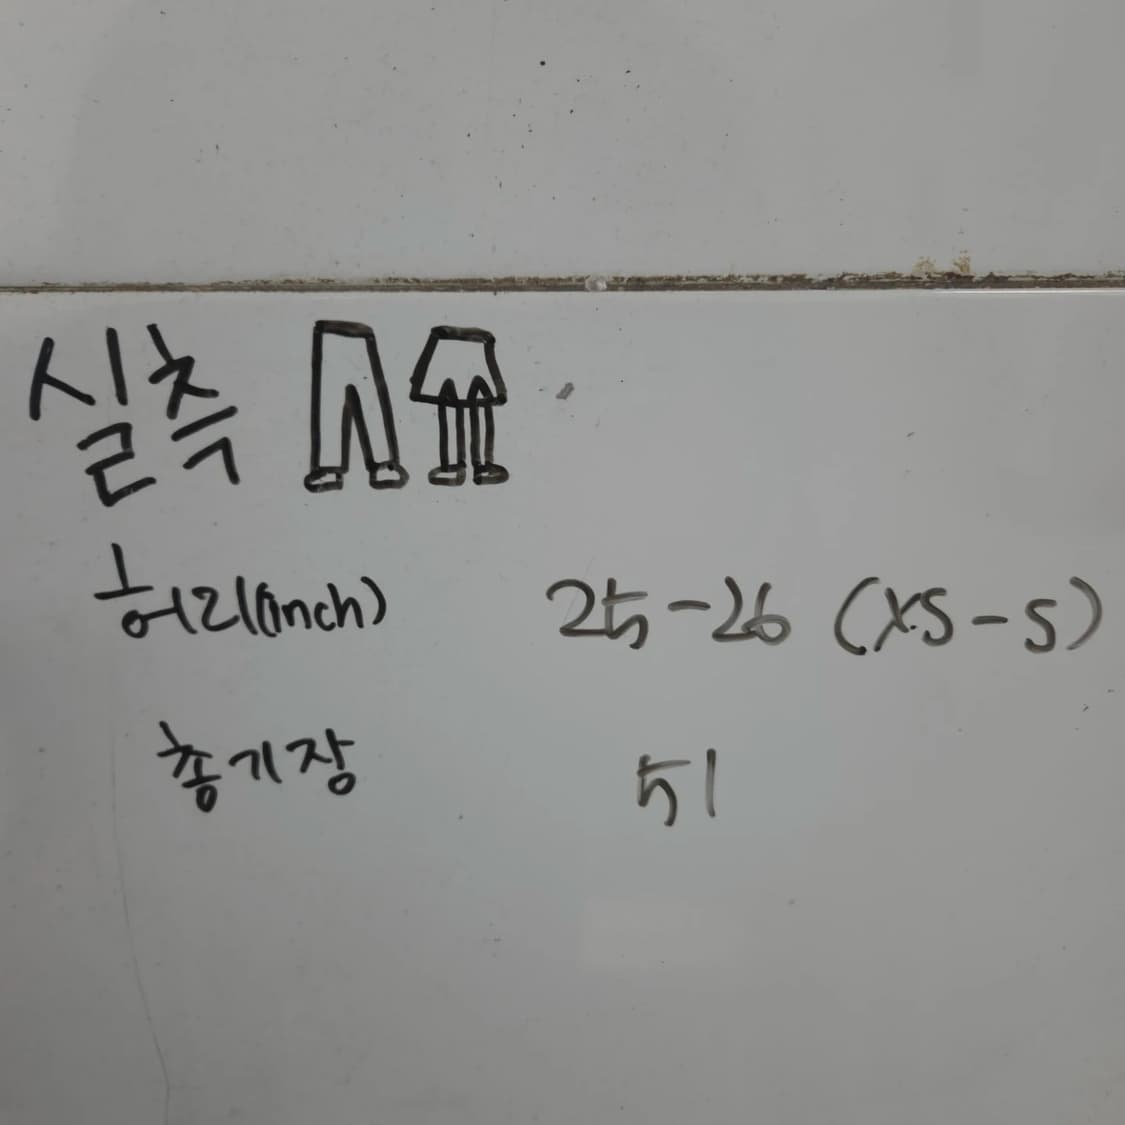 실측
허리(inch) 25-26 (XS-S)
총기장 51